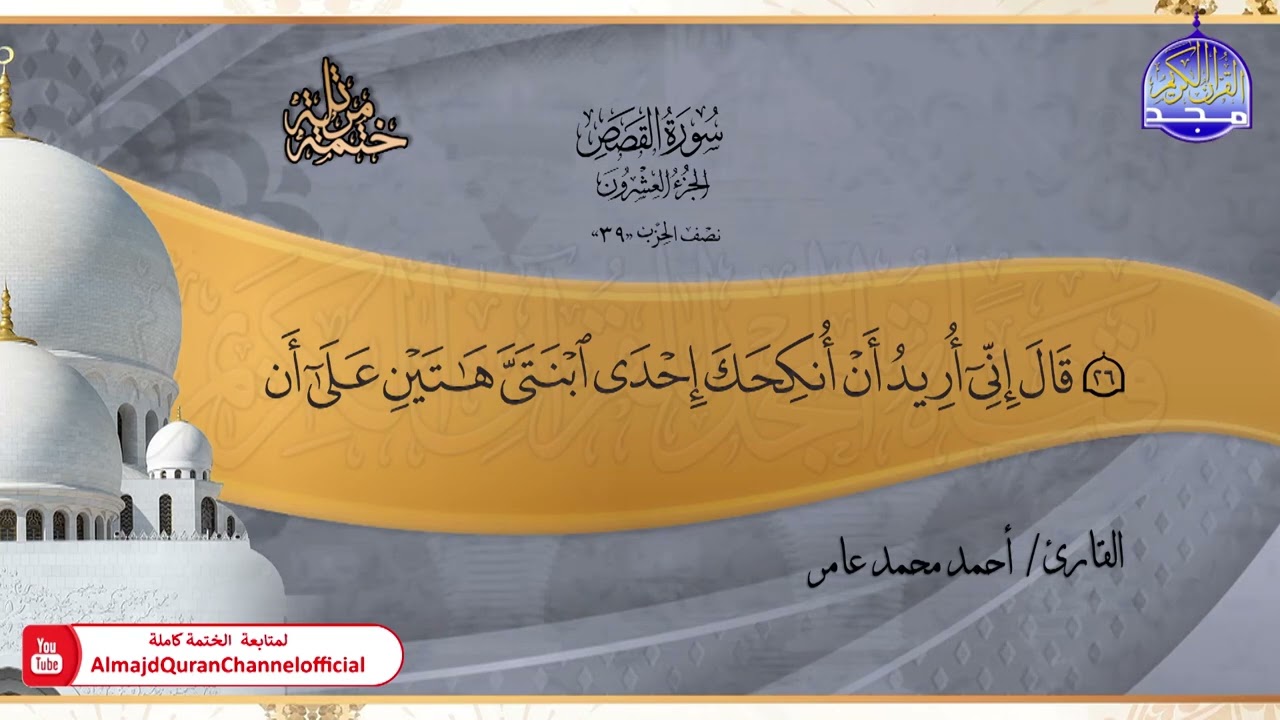 القرآن الكريم
مجد
ختمة مرتلة
سُورَةُ القَصَصِ
الجُزْءُ العِشْرُونَ
نصف الحِزب «٣٩»
٢٦ قَالَ إِنِّيٓ أُرِيدُ أَنْ أُنكِحَكَ إِحْدَى ٱبْنَتَيَّ هَٰتَيْنِ عَلَىٰٓ أَن
القارئ / أحمد محمد عامر
You Tube
لمتابعة الختمة كاملة
AlmajdQuranChannelofficial